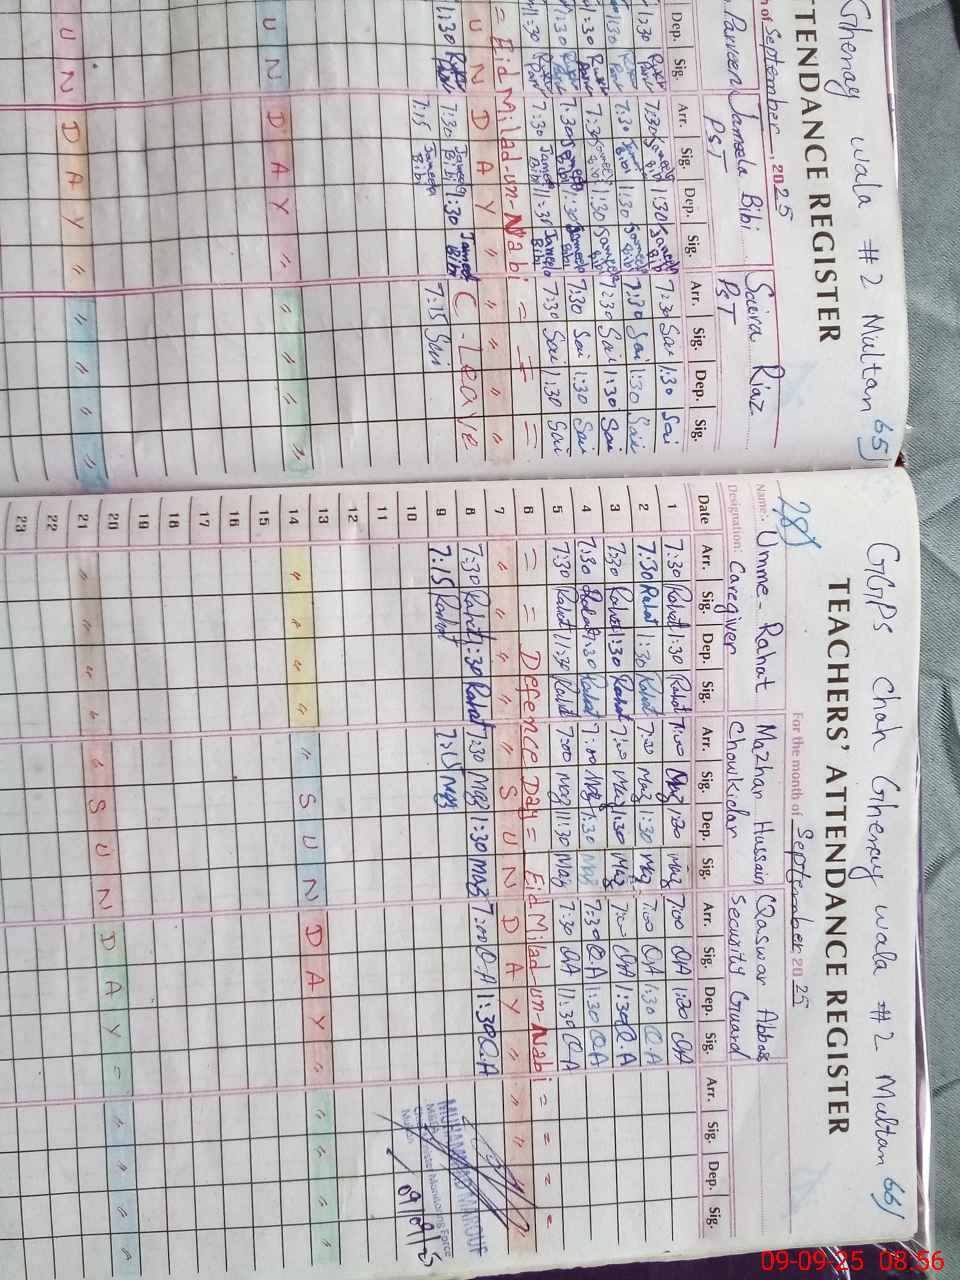 Ghenay wala # 2 Multan 65
TTENDANCE REGISTER
h of September, 2025
Parveen Jameela Bibi Saira Riaz
PST PST
Dep. Sig. Arr. Sig. Dep. Sig. Arr. Sig. Dep. Sig.
1:30 7:30 1:30 7:30 Sai 1:30 Sai
1:30 7:30 1:30 7:30 Sai 1:30 Sai
1:30 7:30 1:30 7:30 Sai 1:30 Sai
1:30 7:30 1:30 7:30 Sai 1:30 Sai
1:30 7:30 Jameela Bibi 1:30 Jameela Bibi 7:30 Sai 1:30 Sai
= Eid Milad-un-Nabi = = =
U N D A Y " " " "
1:30 7:30 Jameela Bibi 1:30 Jameela Bibi C. Leave
7:15 Jameela Bibi 7:15 Sai
U N D A Y " " " " "
U N D A Y " " " " "
GGPS Chah Ghenay wala # 2 Multan 66
TEACHERS' ATTENDANCE REGISTER
For the month of September 2025
28
Name: Umme-Rahat Mazhar Hussain Qaswar Abbas
Designation: Caregiver Chowkidar Security Guard
Date Arr. Sig. Dep. Sig. Arr. Sig. Dep. Sig. Arr. Sig. Dep. Sig. Arr. Sig. Dep. Sig.
1 7:30 Rahat 1:30 Rahat 7:00 Maz 1:30 Maz 7:00 QA 1:30 QA
2 7:30 Rahat 1:30 Rahat 7:30 Maz 1:30 Maz 7:00 QA 1:30 Q.A
3 7:30 Rahat 1:30 Rahat 7:00 Maz 1:30 Maz 7:00 QA 1:30 Q.A
4 7:30 Rahat 1:30 Rahat 7:00 Maz 1:30 Maz 7:30 Q.A 1:30 Q.A
5 7:30 Rahat 1:30 Rahat 7:00 Maz 1:30 Maz 7:30 QA 1:30 Q.A
6 = = Defence Day = Eid Milad-un-Nabi = = = =
7 " " " " " S U N D A Y " " "
8 7:30 Rahat 1:30 Rahat 7:30 Maz 1:30 Maz 7:00 Q.A 1:30 Q.A
9 7:15 Rahat 7:15 Maz
10
11
12
13 " S U N D A Y " " " "
14 " " " "
15
16
17
18
19
20 " S U N D A Y " " " "
21 " " " "
22
23
MUHAMMAD MAROUF
Monitoring Force
09/09/25
09-09-25 08:56